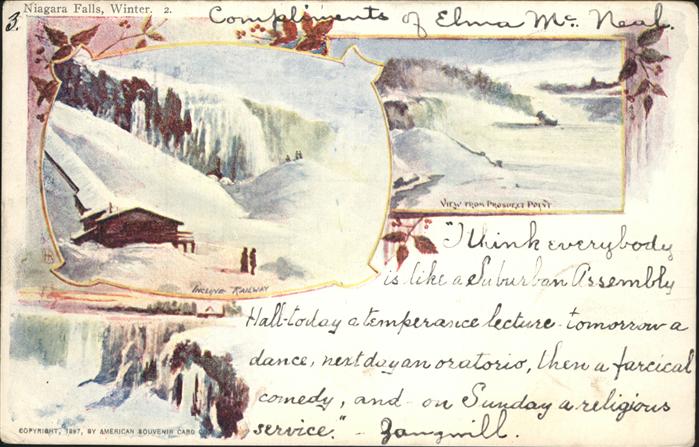 3.
Niagara Falls, Winter. 2.
Compliments of Elma Mc. Neal.
VIEW FROM PROSPECT POINT
INCLINE RAILWAY
"I think everybody
is like a Suburban Assembly
Hall-today a temperance lecture-tomorrow a
dance, next day an oratorio, then a farcical
comedy, and-on Sunday a religious
service." - Zangwill.
COPYRIGHT, 1897, BY AMERICAN SOUVENIR CARD CO